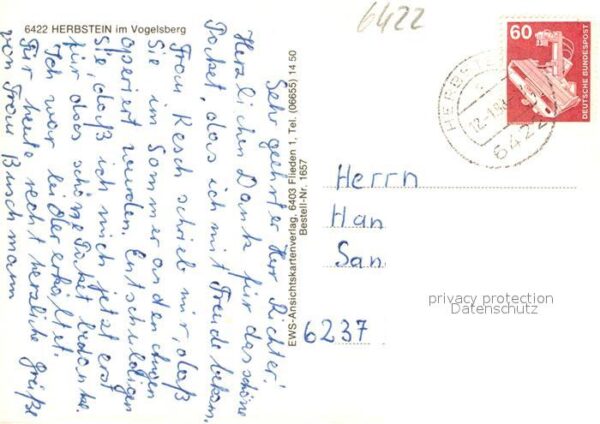 6422 HERBSTEIN im Vogelsberg
6422
Sehr geehrter Herr Richter!
Herzlichen Dank für das schöne
Packet, das ich mit Freude bekam.
Frau Resch schrieb mir, daß
Sie im Sommer an den Augen
operiert wurden. Entschuldigen
Sie, daß ich mich jetzt erst
für das schöne Packet bedanke.
Ich war leider erkältet.
Für heute recht herzliche Grüße
von Frau Buschmann
EWS-Ansichtskartenverlag, 6403 Flieden 1, Tel. (06655) 14 50
Bestell-Nr. 1657
60
DEUTSCHE BUNDESPOST
HERBSTEIN
6422
Herrn
Han
San
6237
privacy protection
Datenschutz